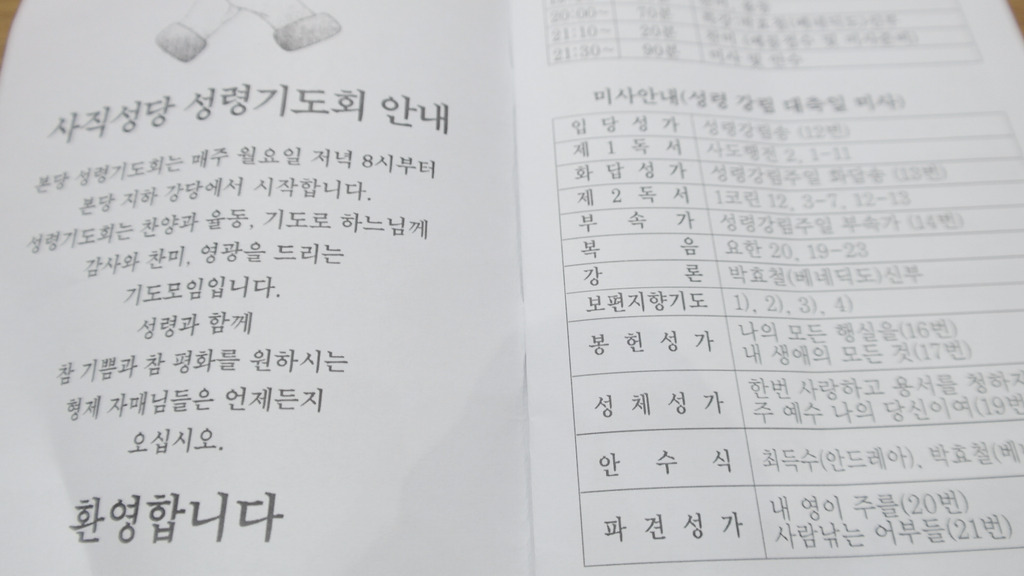 사직성당 성령기도회 안내
본당 성령기도회는 매주 월요일 저녁 8시부터
본당 지하 강당에서 시작합니다.
성령기도회는 찬양과 율동, 기도로 하느님께
감사와 찬미, 영광을 드리는
기도모임입니다.
성령과 함께
참 기쁨과 참 평화를 원하시는
형제 자매님들은 언제든지
오십시오.
환영합니다
20:00~ 70분
21:10~ 20분
21:30~ 90분 미사 및 안수
미사안내(성령 강림 대축일 미사)
입당성가 성령강림송 (12번)
제1독서 사도행전 2, 1-11
화답성가 성령강림주일 화답송 (13번)
제2독서 1코린 12, 3-7, 12-13
부속가 성령강림주일 부속가 (14번)
복음 요한 20, 19-23
강론 박효철(베네딕도)신부
보편지향기도 1), 2), 3), 4)
봉헌성가 나의 모든 행실을(16번)
내 생애의 모든 것(17번)
성체성가 한번 사랑하고 용서를 청하
주 예수 나의 당신이여(19번
안수식 최득수(안드레아), 박효철(베
파견성가 내 영이 주를(20번)
사람낚는 어부들(21번)